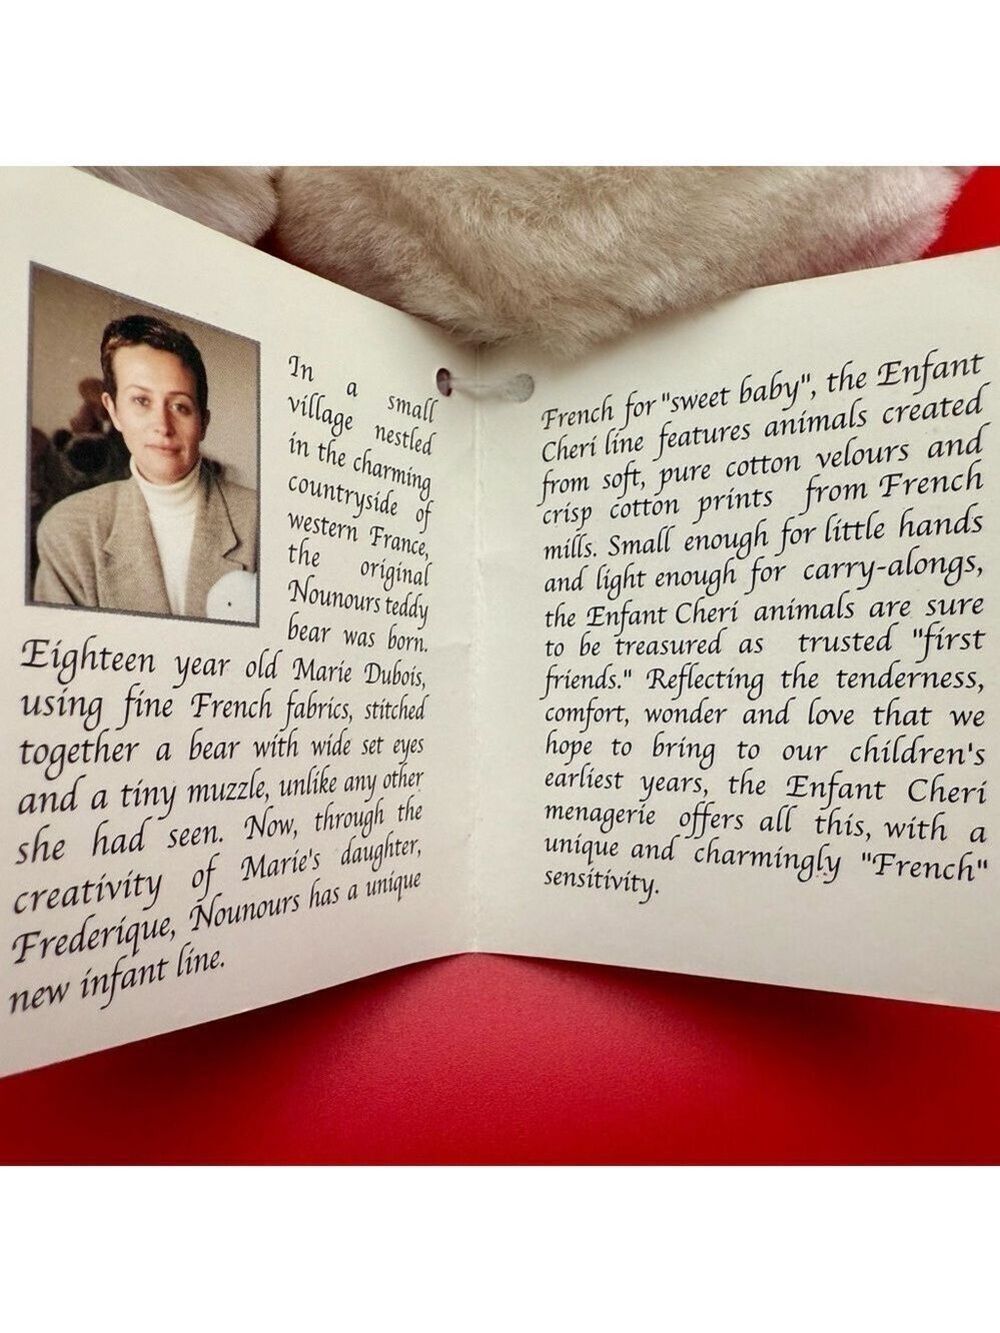 In a small
village nestled
in the charming
countryside of
western France,
the original
Nounours teddy
bear was born.
Eighteen year old Marie Dubois,
using fine French fabrics, stitched
together a bear with wide set eyes
and a tiny muzzle, unlike any other
she had seen. Now, through the
creativity of Marie's daughter,
Frederique, Nounours has a unique
new infant line.
French for "sweet baby", the Enfant
Cheri line features animals created
from soft, pure cotton velours and
crisp cotton prints from French
mills. Small enough for little hands
and light enough for carry-alongs,
the Enfant Cheri animals are sure
to be treasured as trusted "first
friends." Reflecting the tenderness,
comfort, wonder and love that we
hope to bring to our children's
earliest years, the Enfant Cheri
menagerie offers all this, with a
unique and charmingly "French"
sensitivity.